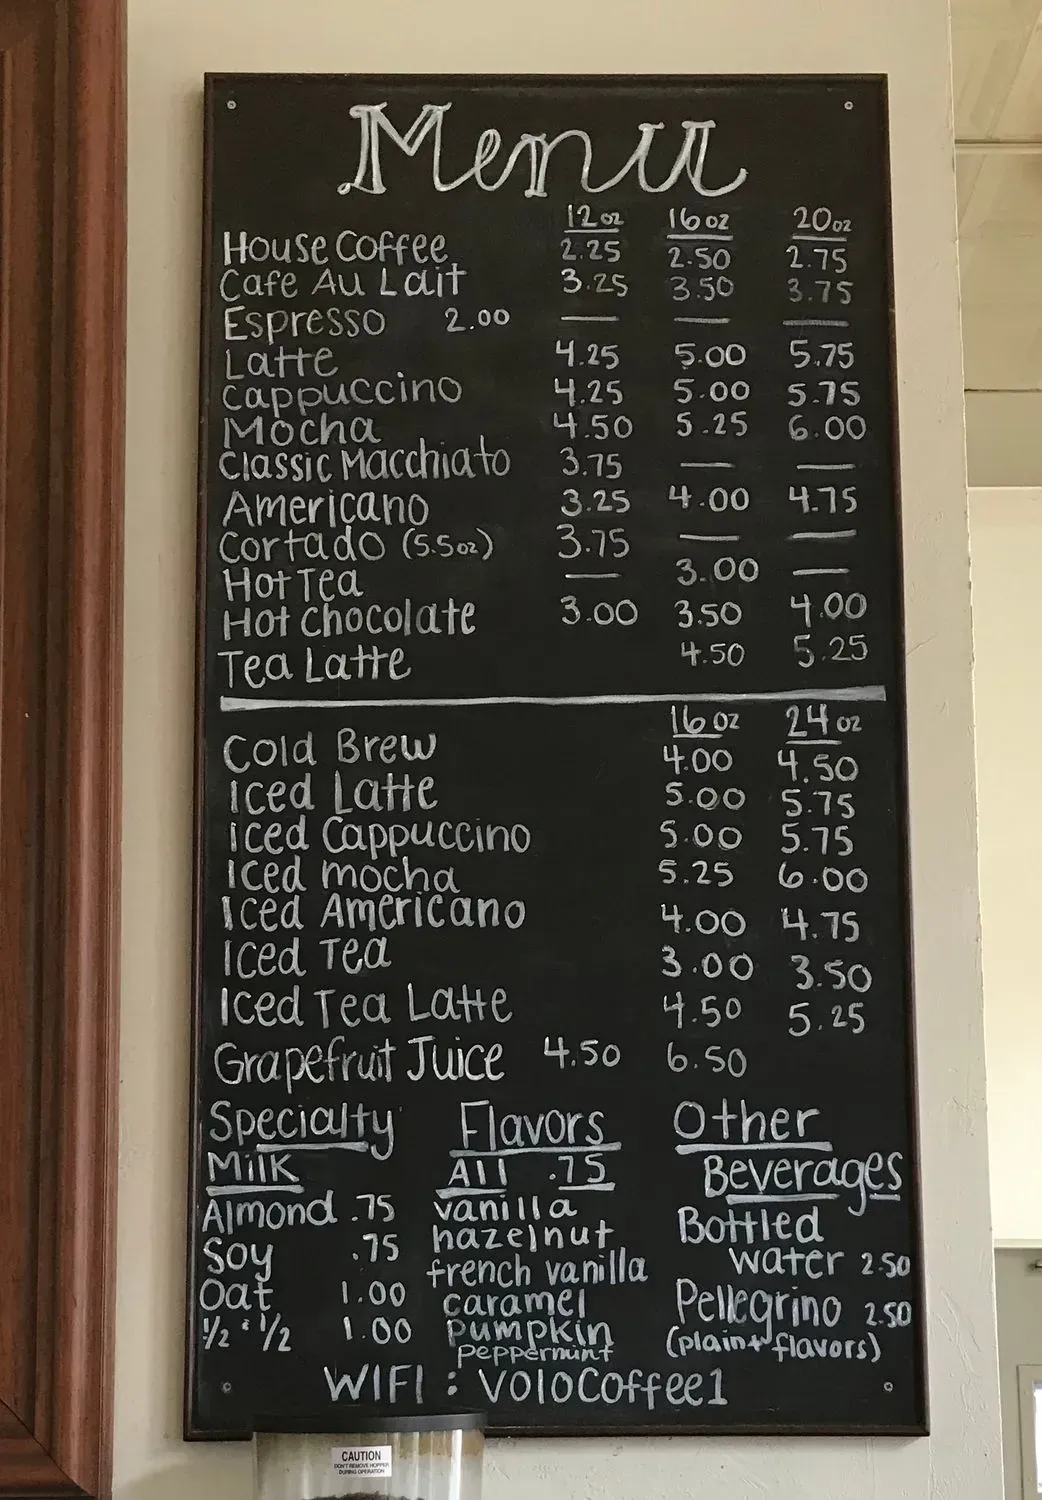 Menu
12oz 16oz 20oz
House Coffee 2.25 2.50 2.75
Cafe Au Lait 3.25 3.50 3.75
Espresso 2.00 — — —
Latte 4.25 5.00 5.75
Cappuccino 4.25 5.00 5.75
Mocha 4.50 5.25 6.00
Classic Macchiato 3.75 — —
Americano 3.25 4.00 4.75
Cortado (5.5oz) 3.75 — —
Hot Tea — 3.00 —
Hot Chocolate 3.00 3.50 4.00
Tea Latte 4.50 5.25
16oz 24oz
Cold Brew 4.00 4.50
Iced Latte 5.00 5.75
Iced Cappuccino 5.00 5.75
Iced mocha 5.25 6.00
Iced Americano 4.00 4.75
Iced Tea 3.00 3.50
Iced Tea Latte 4.50 5.25
Grapefruit Juice 4.50 6.50
Specialty
Milk
Almond .75
Soy .75
Oat 1.00
1/2 · 1/2 1.00
Flavors
All .75
vanilla
hazelnut
french vanilla
caramel
pumpkin
peppermint
Other
Beverages
Bottled
water 2.50
Pellegrino 2.50
(plain + flavors)
WIFI : VoloCoffee1
CAUTION
DON'T REMOVE HOPPER
DURING OPERATION